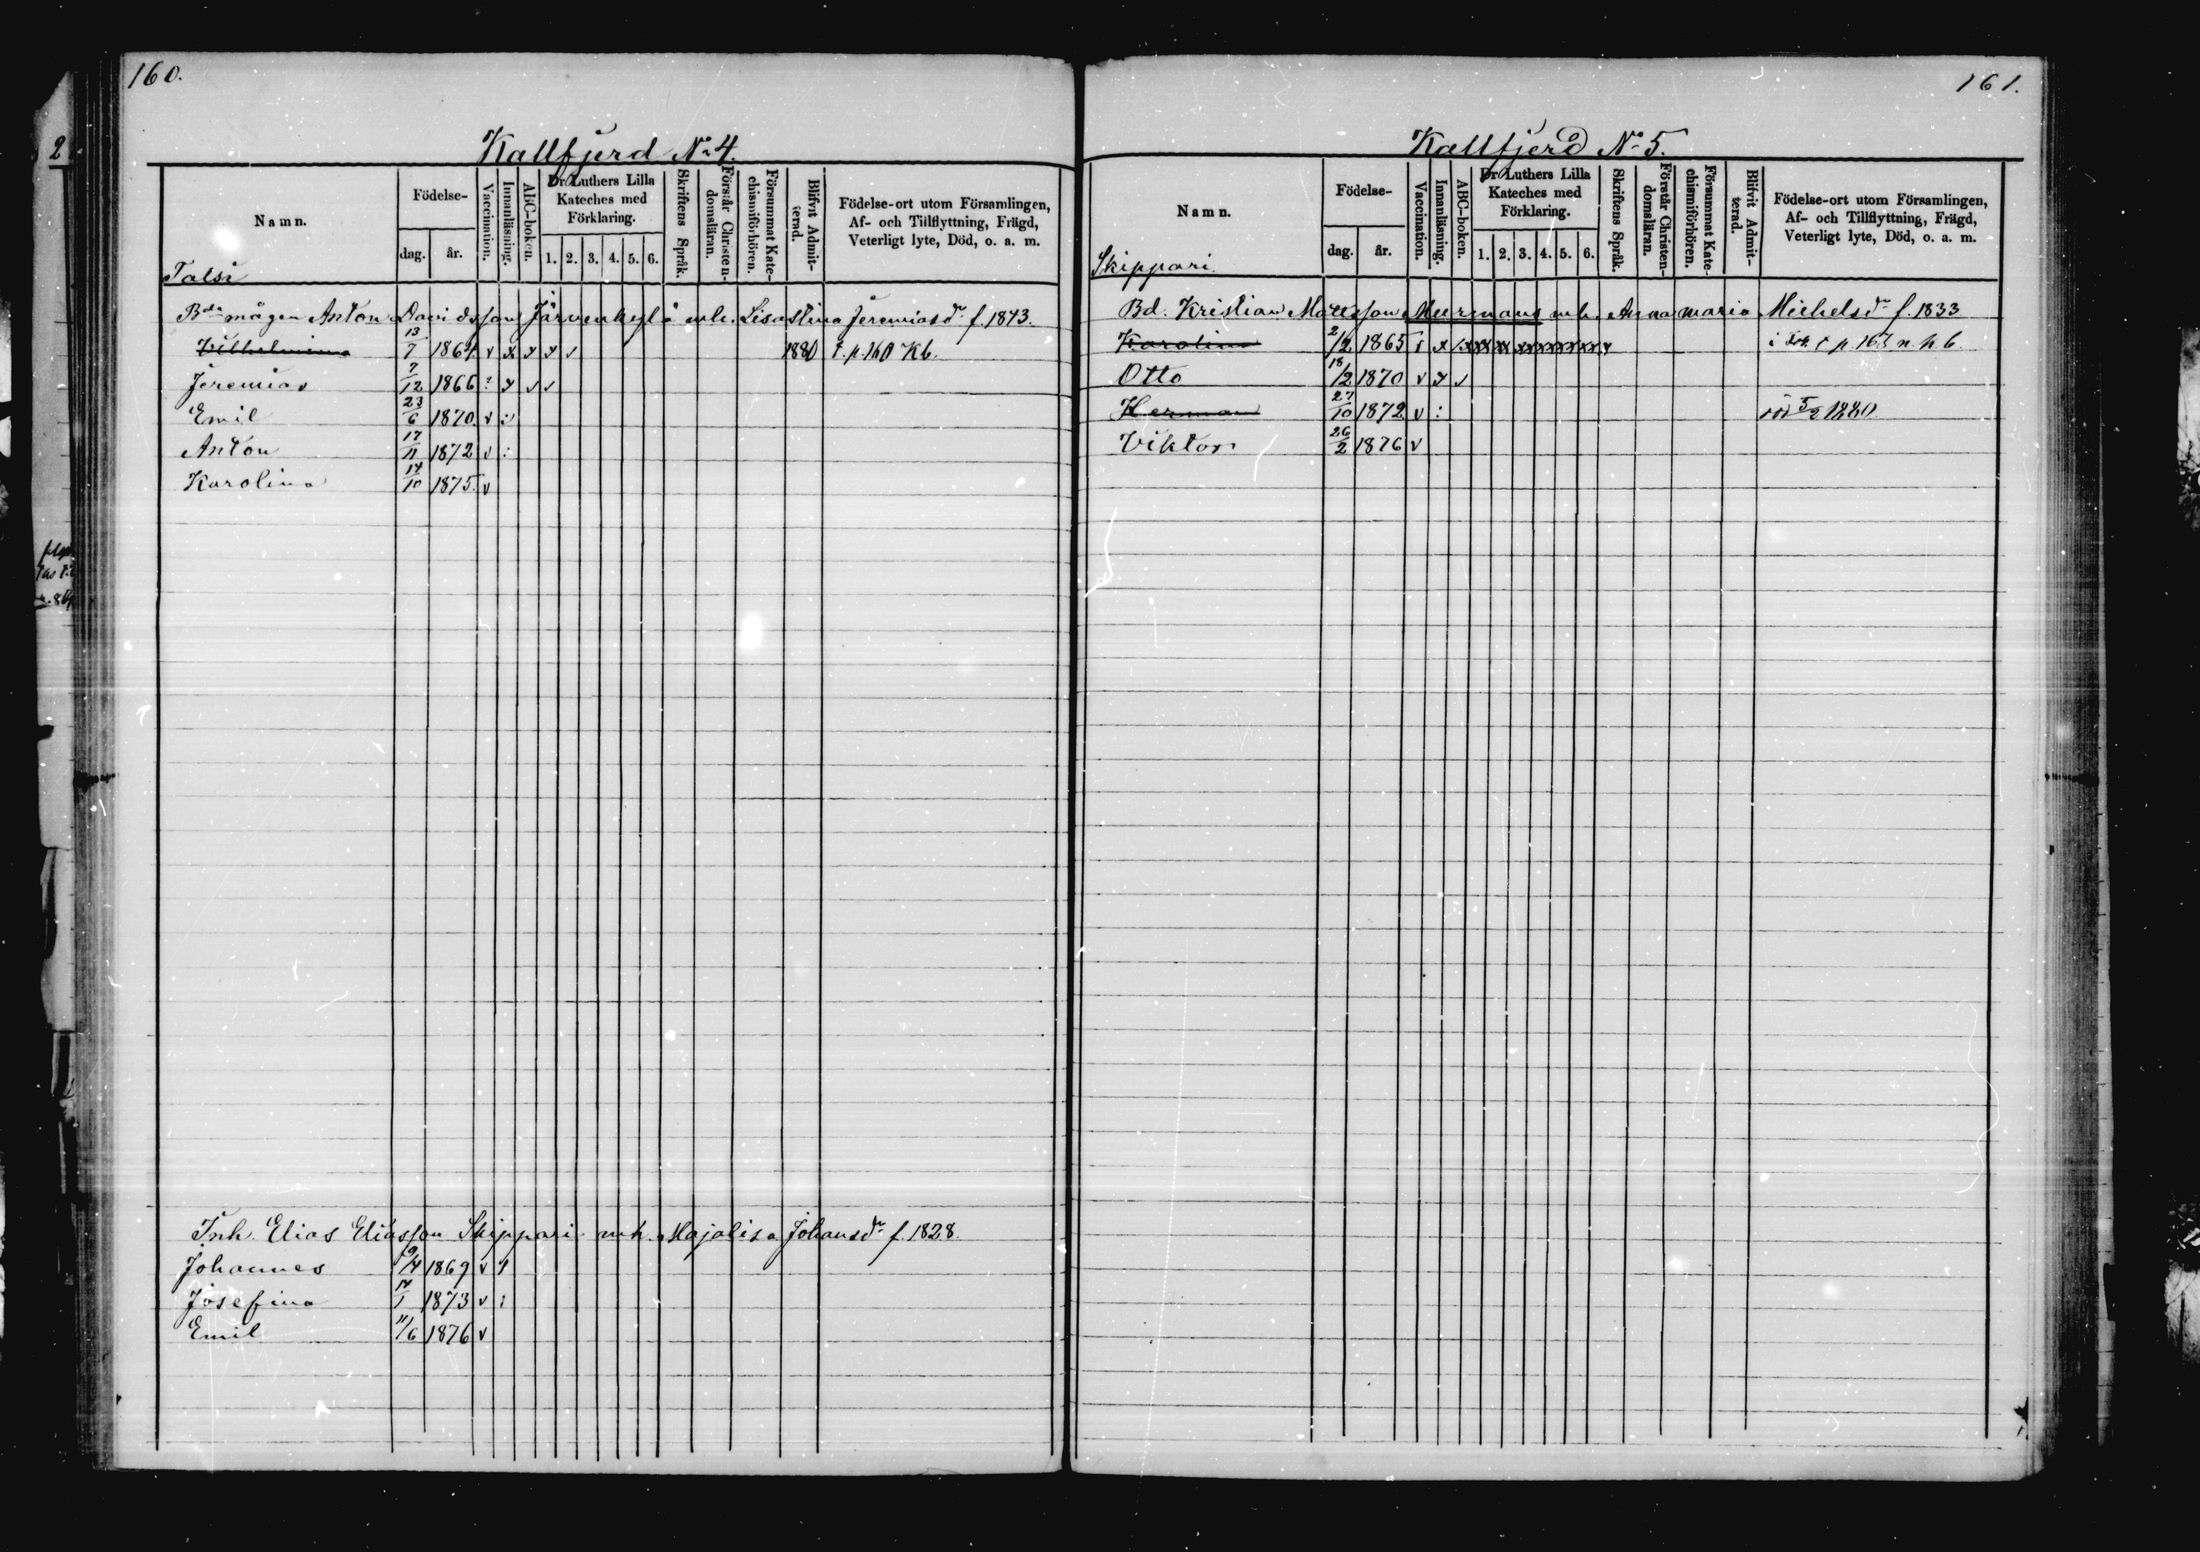 160.
Kallfjerd No 4.
Namn.
Födelse-
dag.
år.
Vaccination.
Innanläsning.
ABC-boken.
Dr Luthers Lilla
Kateches med
Förklaring.
1. 2. 3. 4. 5. 6.
Skriftens Språk.
Förstår Christen-
domsläran.
Försummat Kate-
chismiförhören.
Blifvit Admit-
terad.
Födelse-ort utom Församlingen,
Af- och Tillflyttning, Frägd,
Veterligt lyte, Död, o. a. m.
Talsi
Bde mågen Anton Davidsson Järvenkylä mh. Lisastina Jeremiasdr f. 1843.
Vilhelmina 13/7 1864 v x x x / 1880 t. p. 160 Kb.
Jeremias 7/12 1866 : x / /
Emil 23/6 1870 v :/
Anton 17/11 1872 v :
Karolina 14/10 1875. v
Inh. Elias Eliasson Skippari mh. Majalisa Johansdr f. 1828.
Johannes 9/4 1869 v 1
Josefina 17/1 1873 v :
Emil 11/6 1876 v
161.
Kallfjerd No 5.
Namn.
Födelse-
dag.
år.
Vaccination.
Innanläsning.
ABC-boken.
Dr Luthers Lilla
Kateches med
Förklaring.
1. 2. 3. 4. 5. 6.
Skriftens Språk.
Förstår Christen-
domsläran.
Försummat Kate-
chismiförhören.
Blifvit Admit-
terad.
Födelse-ort utom Församlingen,
Af- och Tillflyttning, Frägd,
Veterligt lyte, Död, o. a. m.
Skippari.
Bd. Kristian Mattsson Meermans mh. Annamaria Michelsdr f. 1833
Karolina 2/2 1865 p. 163 n. k b.
Otto 18/2 1870 v x /
Herman 27/10 1872 v : död 5/2 1880.
Viktor 26/2 1876 v